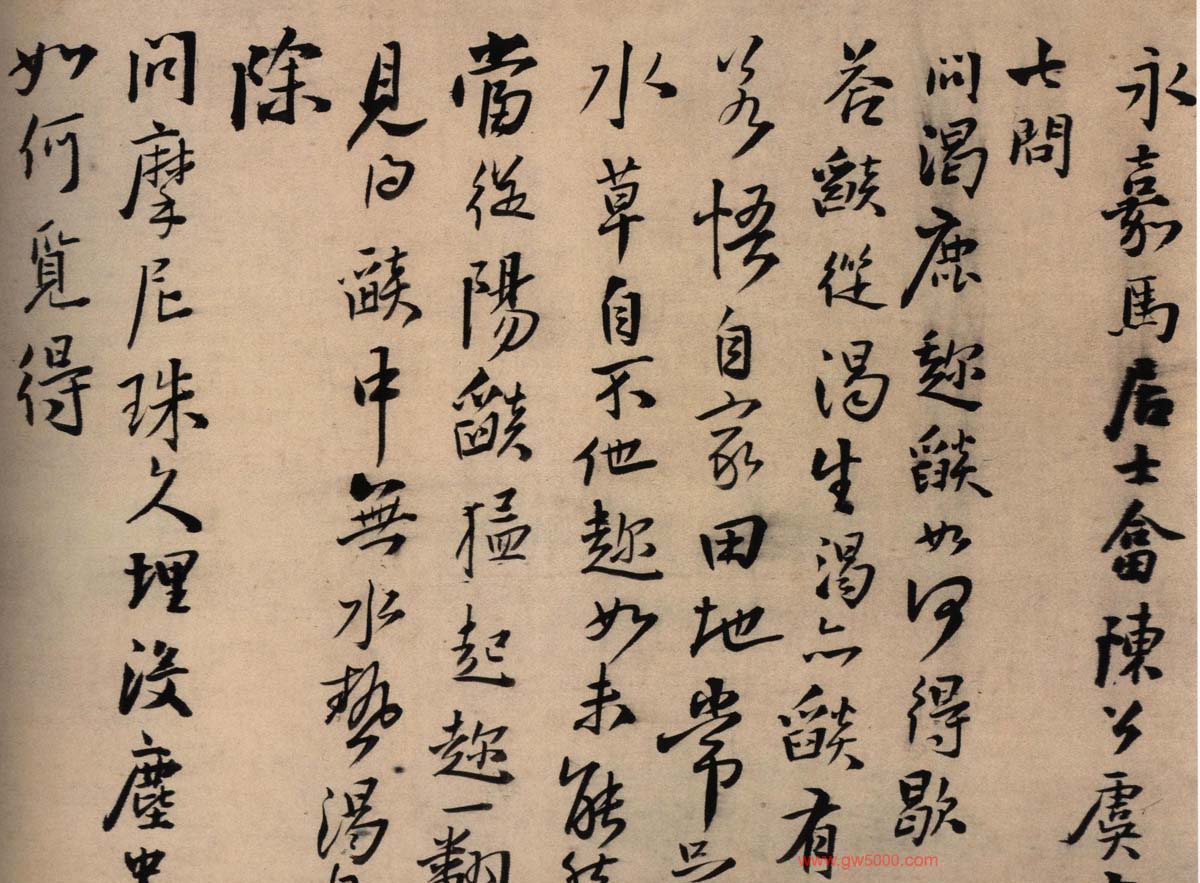 永嘉馬居士畣陳公虞
七問
問渴鹿趂燄如何得歇
荅燄從渴生渴亦燄有
若悟自家田地常
水草自不他趂如未能
當從陽燄猛起趂一翻
見得燄中無水勢渴
除
問摩尼珠久埋没塵中
如何覓得
www.gw5000.com